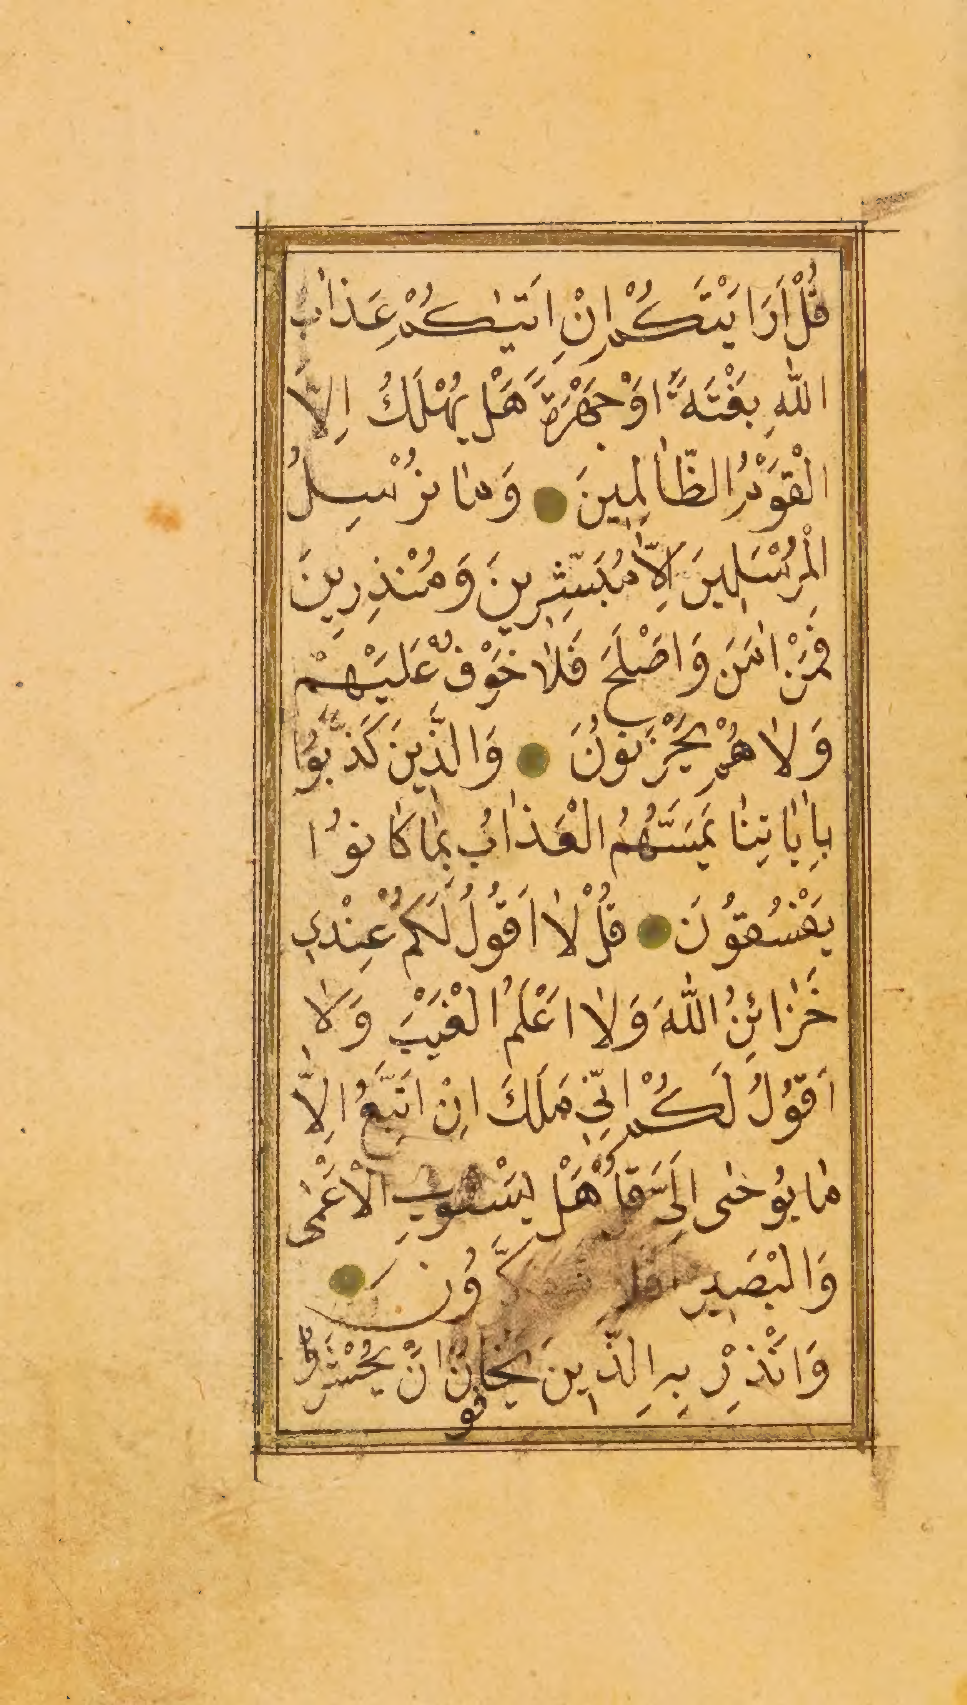 قُلْ اَرَاَيْتَكُمْ اِنْ اَتٰيكُمْ عَذَابُ
اللّٰهِ بَغْتَةً اَوْ جَهْرَةً هَلْ يُهْلَكُ اِلَّا
الْقَوْمُ الظَّالِمِينَ وَمَا نُرْسِلُ
الْمُرْسَلِينَ اِلَّا مُبَشِّرِينَ وَمُنْذِرِينَ
فَمَنْ اٰمَنَ وَاَصْلَحَ فَلَا خَوْفٌ عَلَيْهِمْ
وَلَا هُمْ يَحْزَنُونَ وَالَّذِينَ كَذَّبُوا
بِاٰيَاتِنَا يَمَسُّهُمُ الْعَذَابُ بِمَا كَانُوا
يَفْسُقُونَ قُلْ لَا اَقُولُ لَكُمْ عِنْدِي
خَزَائِنُ اللّٰهَ وَلَا اَعْلَمُ الْغَيْبَ وَلَا
اَقُولُ لَكُمْ اِنِّي مَلَكَ اِنْ اَتَّبِعُ اِلَّا
مَا يُوحٰى اِلَىَّ قُلْ هَلْ يَسْتَوِي الْاَعْمٰى
وَالْبَصِيرِ
وَاَنْذِرْ بِهِ الَّذِينَ يَخَافُونَ اَنْ يُحْشَرُوا